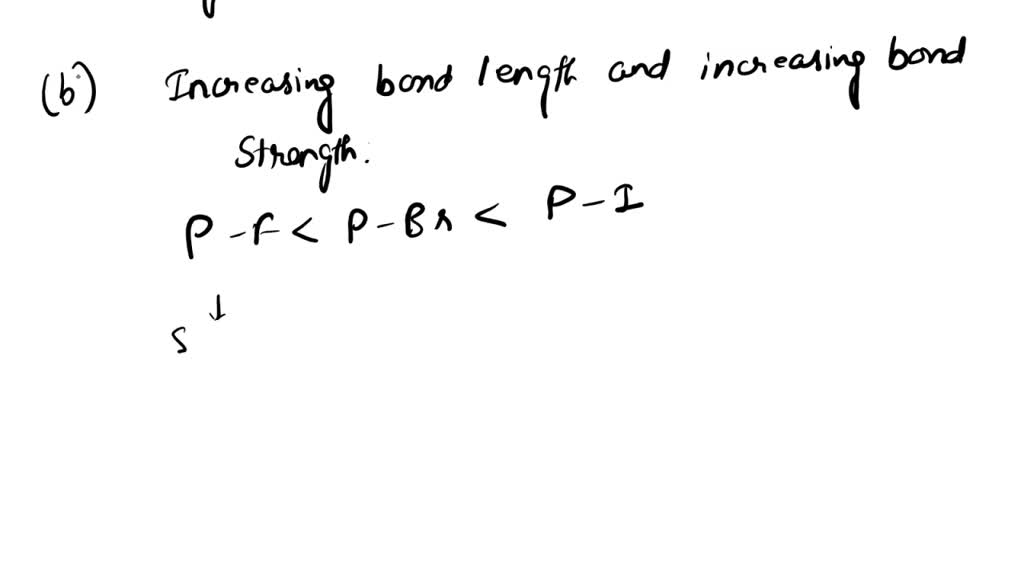 (b) Increasing bond length and increasing bond
Strength.
P-F < P-Br < P-I
↓
S